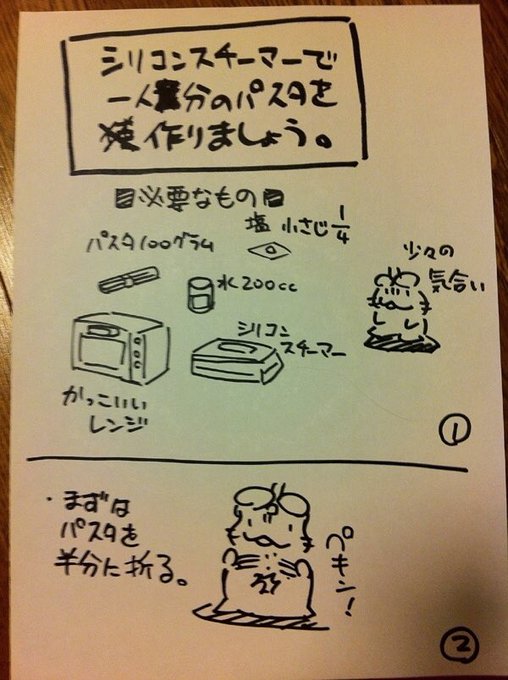 シリコンスチーマーで
一人分のパスタを
作りましょう。
必要なもの
塩 小さじ1/4
パスタ100グラム
水200cc
少々の
気合い
シリコン
スチーマー
かっこいい
レンジ
①
・まずは
パスタを
半分に折る。
ペキン!
②